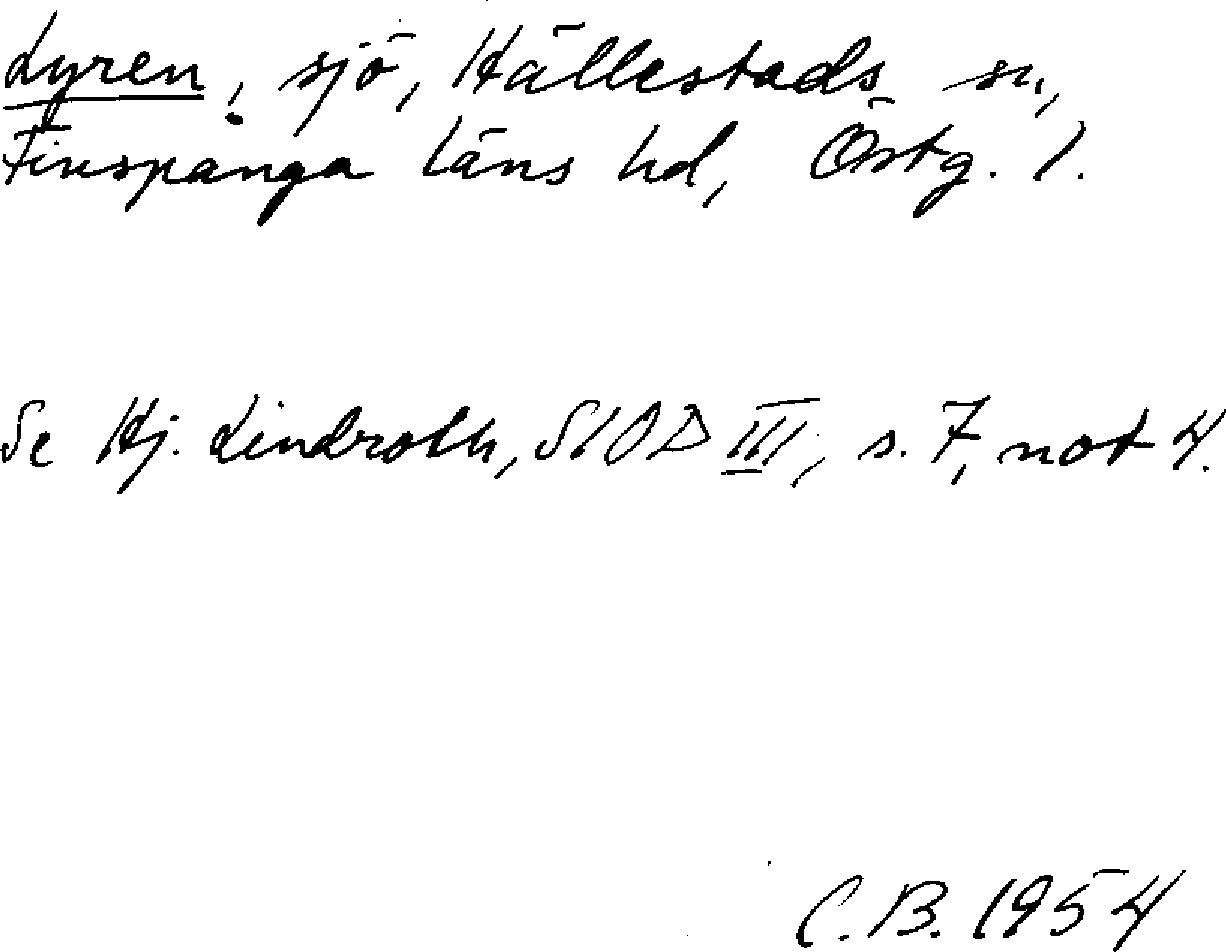 Lyren, sjö, Hällestads sn,
Finspånga läns hd, Östg. l.
Se Hj. Lindroth, SIOD III, s. 7, not 4.
C.B. 1954